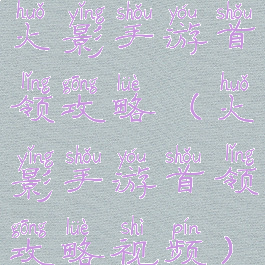 huǒ yǐng shǒu yóu shǒu
火影手游首
lǐng gōng lüè huǒ
领攻略（火
yǐng shǒu yóu shǒu lǐng
影手游首领
gōng lüè shì pín
攻略视频）